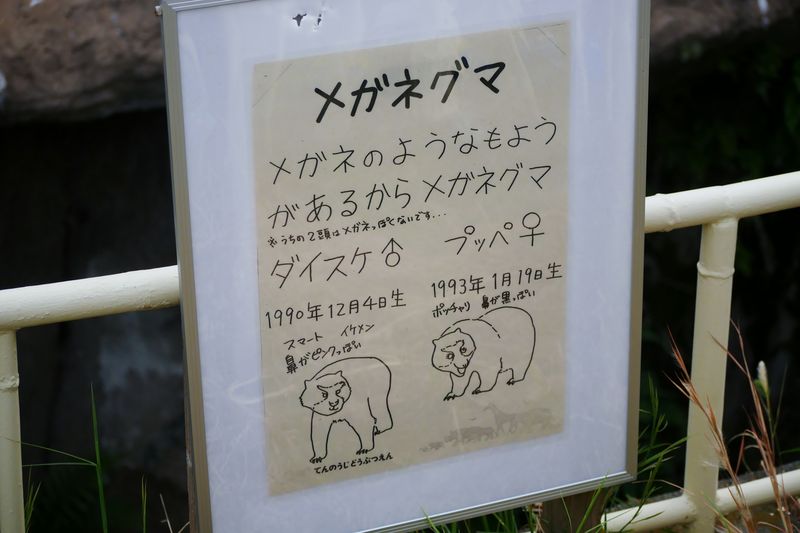 メガネグマ
メガネのようなもよう
があるからメガネグマ
※うちの2頭はメガネっぽくないです...
ダイスケ♂
プッペ♀
1990年12月4日生
1993年1月19日生
スマート イケメン
鼻がピンクっぽい
ポッチャリ 鼻が黒っぽい
てんのうじどうぶつえん